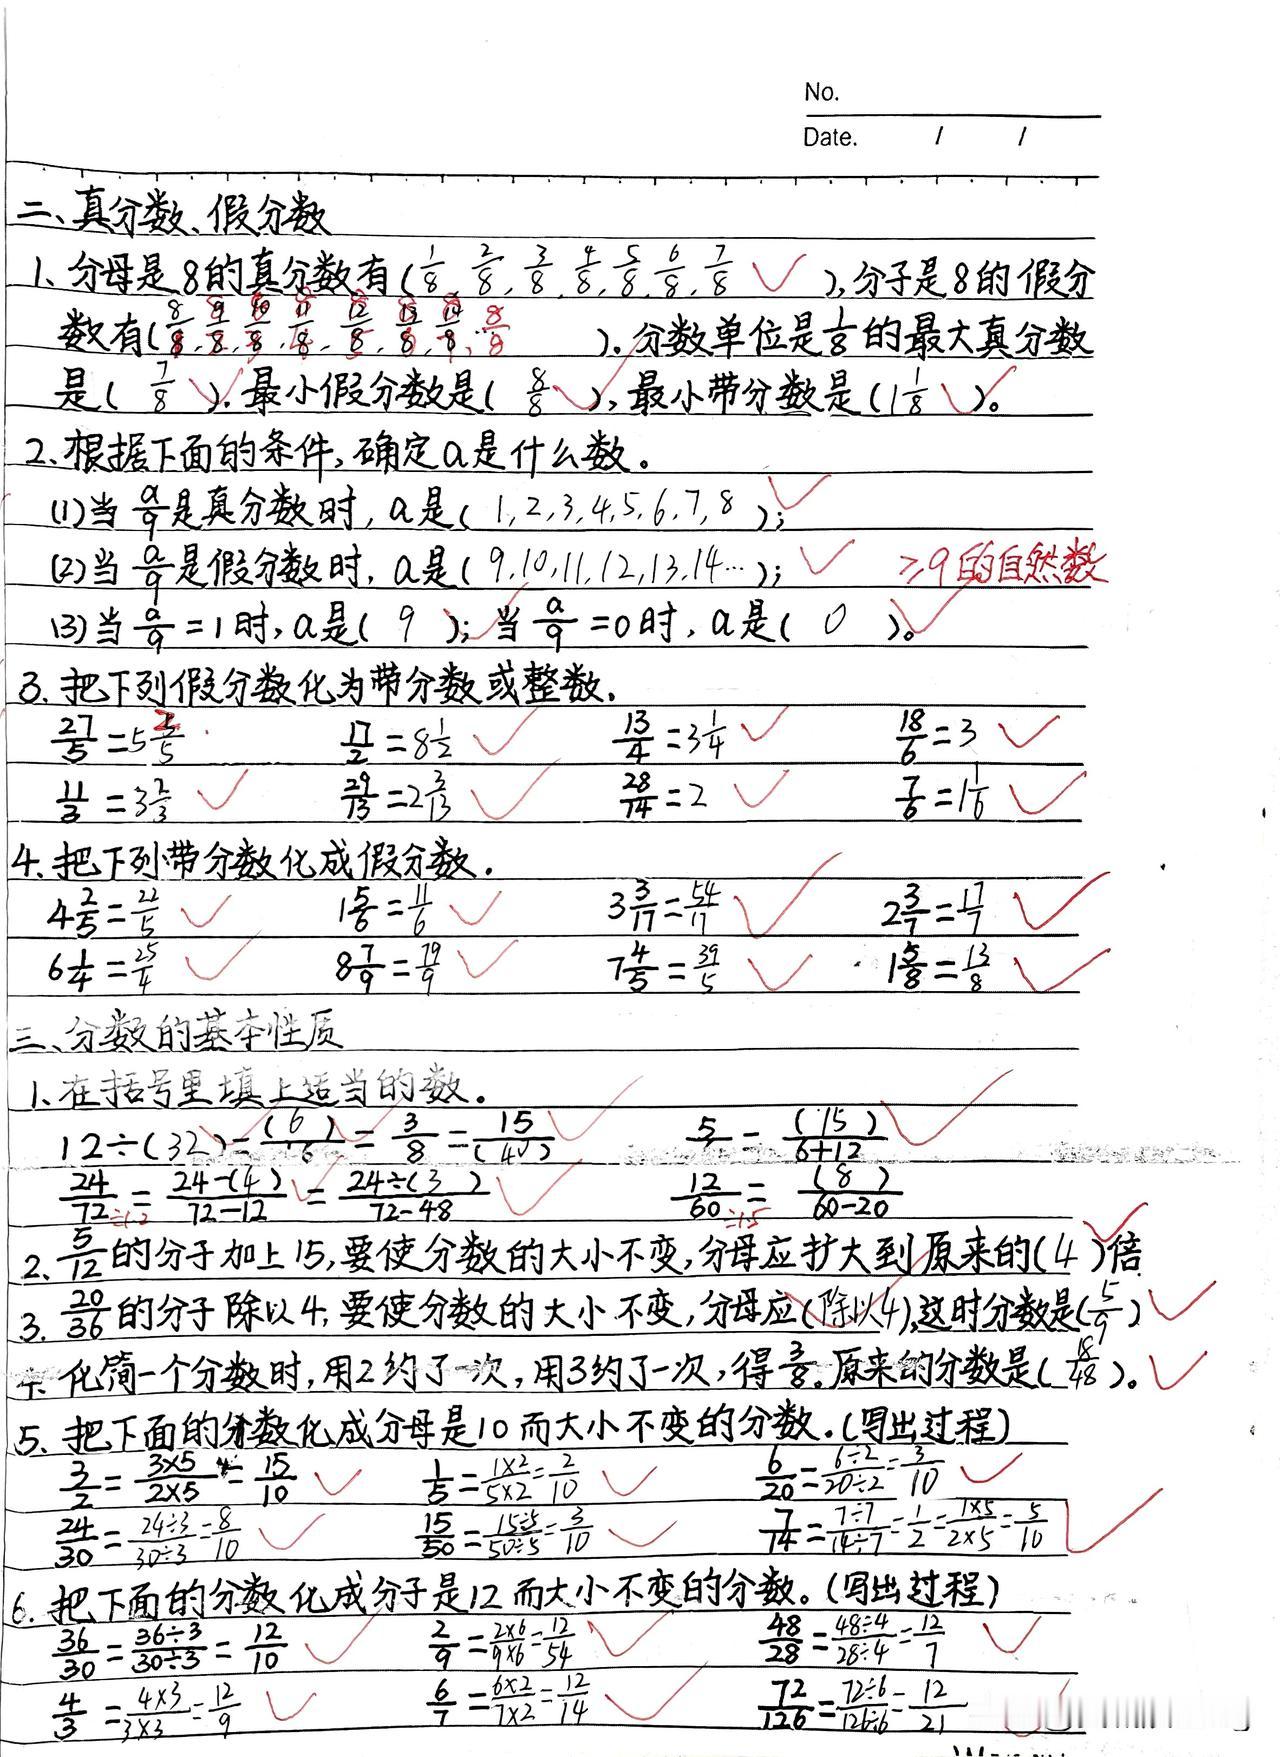 No.
Date. / /
二、真分数、假分数
1. 分母是8的真分数有(1/8, 2/8, 3/8, 4/8, 5/8, 6/8, 7/8),分子是8的假分
数有(8/8, 9/8, 10/8, 11/8, 12/8, 13/8, 14/8… 8/8). 分数单位是1/8的最大真分数
是( 7/8 ). 最小假分数是( 8/8 ), 最小带分数是(1 1/8 )。
2、根据下面的条件,确定a是什么数。
(1)当 a/9 是真分数时, a是( 1, 2, 3, 4, 5, 6, 7, 8 );
(2)当 a/9 是假分数时, a是( 9, 10, 11, 12, 13, 14… ); ≥9的自然数
(3)当 a/9 =1时, a是( 9 ); 当 a/9 =0时, a是( 0 )。
3. 把下列假分数化为带分数或整数.
27/5 = 5 2/5 17/2 = 8 1/2 13/4 = 3 1/4 18/6 = 3
11/3 = 3 2/3 29/13 = 2 3/13 28/14 = 2 7/6 = 1 1/6
4. 把下列带分数化成假分数.
4 2/5 = 22/5 1 5/6 = 11/6 3 3/17 = 54/17 2 3/7 = 17/7
6 1/4 = 25/4 8 7/9 = 79/9 7 4/5 = 39/5 1 5/8 = 13/8
三、分数的基本性质
1. 在括号里填上适当的数。
12÷(32) = (6)/16 = 3/8 = 15/(40) 5/ = (15)/6+12
24/72 = 24-(4)/72-12 = 24÷(3)/72-48 12/60 = (8)/60-20
÷1.2 ÷1.5
2. 5/12 的分子加上15,要使分数的大小不变,分母应扩大到原来的( 4 )倍
3. 20/36 的分子除以4, 要使分数的大小不变,分母应(除以4),这时分数是( 5/9 )
4. 化简一个分数时,用2约了一次,用3约了一次,得 3/8。原来的分数是( 18/48 )。
5. 把下面的分数化成分母是10而大小不变的分数.(写出过程)
3/2 = 3×5/2×5 = 15/10 1/5 = 1×2/5×2 = 2/10 6/20 = 6÷2/20÷2 = 3/10
24/30 = 24÷3/30÷3 = 8/10 15/50 = 15÷5/50÷5 = 3/10 7/14 = 7÷7/14÷7 = 1/2 = 1×5/2×5 = 5/10
6. 把下面的分数化成分子是12而大小不变的分数。(写出过程)
36/30 = 36÷3/30÷3 = 12/10 2/9 = 2×6/9×6 = 12/54 48/28 = 48÷4/28÷4 = 12/7
4/3 = 4×3/3×3 = 12/9 6/7 = 6×2/7×2 = 12/14 72/126 = 72÷6/126÷6 = 12/21